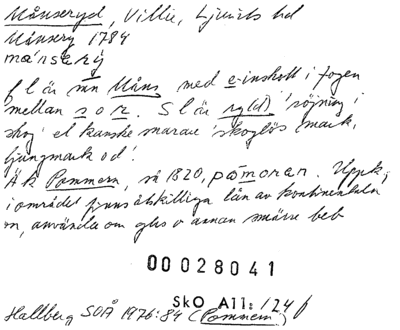 Månseryd, Villie, Ljunits hd
Månsery 1784
månserÿ
fl är mn Måns med e-inskott i fogen
mellan s o r. Sl är ry(d) 'röjning i
skog' el kanske snarare 'skoglös mark,
ljungmark od'.
Äk Pommern, så 1820, påmoran. Uppk,
i området finns åtskilliga lån av kontinentala
on, använda om ghs o annan smärre beb
00028041
SkO All: 124 f
Hallberg SOÅ 1976: 84 (Pommern)